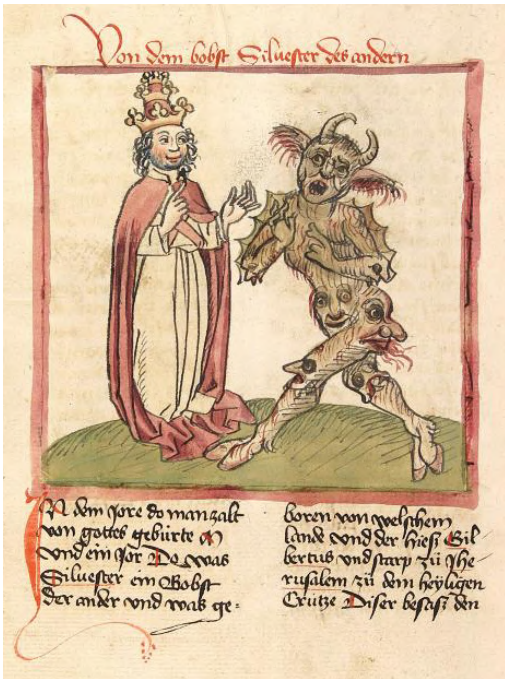 Von dem bobst Siluester des andern
In dem jore do man zalt
von gottes gebürte M
vnd ein jor Do was
Siluester ein Bobst
der ander vnd was ge-
boren von welschem
lande vnd der hiesz Gil
bertus vnd starp zü Jhe
rusalem zü dem heyligen
Crütze Diser besasz den